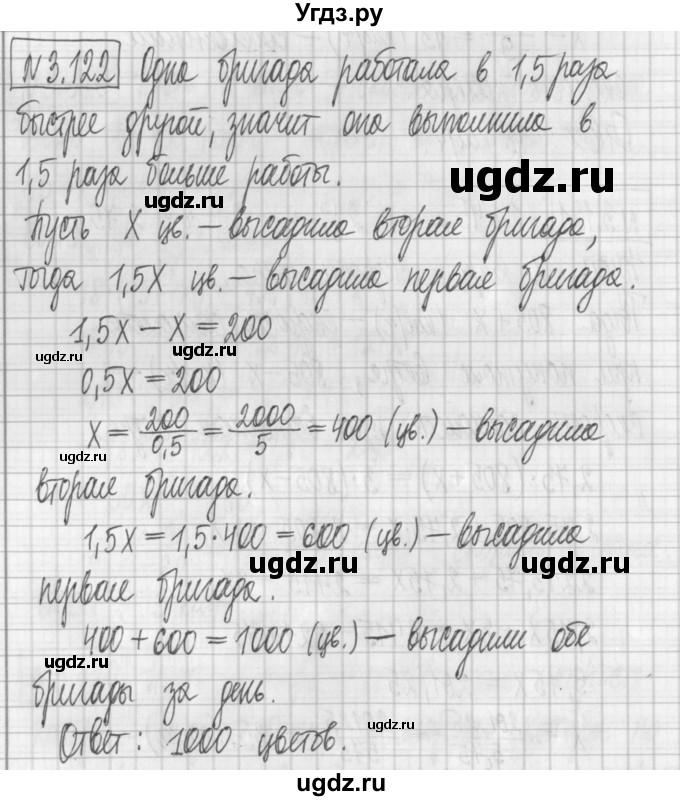 Угдз.ру
№3.122 Одна бригада работала в 1,5 раза
быстрее другой, значит она выполнила в
1,5 раза больше работы.
ugdz.ru
ugdz.ru
Пусть X цв. – высадила вторая бригада,
тогда 1,5X цв. – высадила первая бригада.
1,5X – X = 200
ugdz.ru
ugdz.ru
0,5X = 200
X = 200/0,5 = 2000/5 = 400 (цв.) – высадила
ugdz.ru
вторая бригада.
ugdz.ru
1,5X = 1,5·400 = 600 (цв.) – высадила
ugdz.ru
первая бригада.
ugdz.ru
400 + 600 = 1000 (цв.) – высадили обе
ugdz.ru
бригады за день.
ugdz.ru
Ответ: 1000 цветов.
ugdz.ru